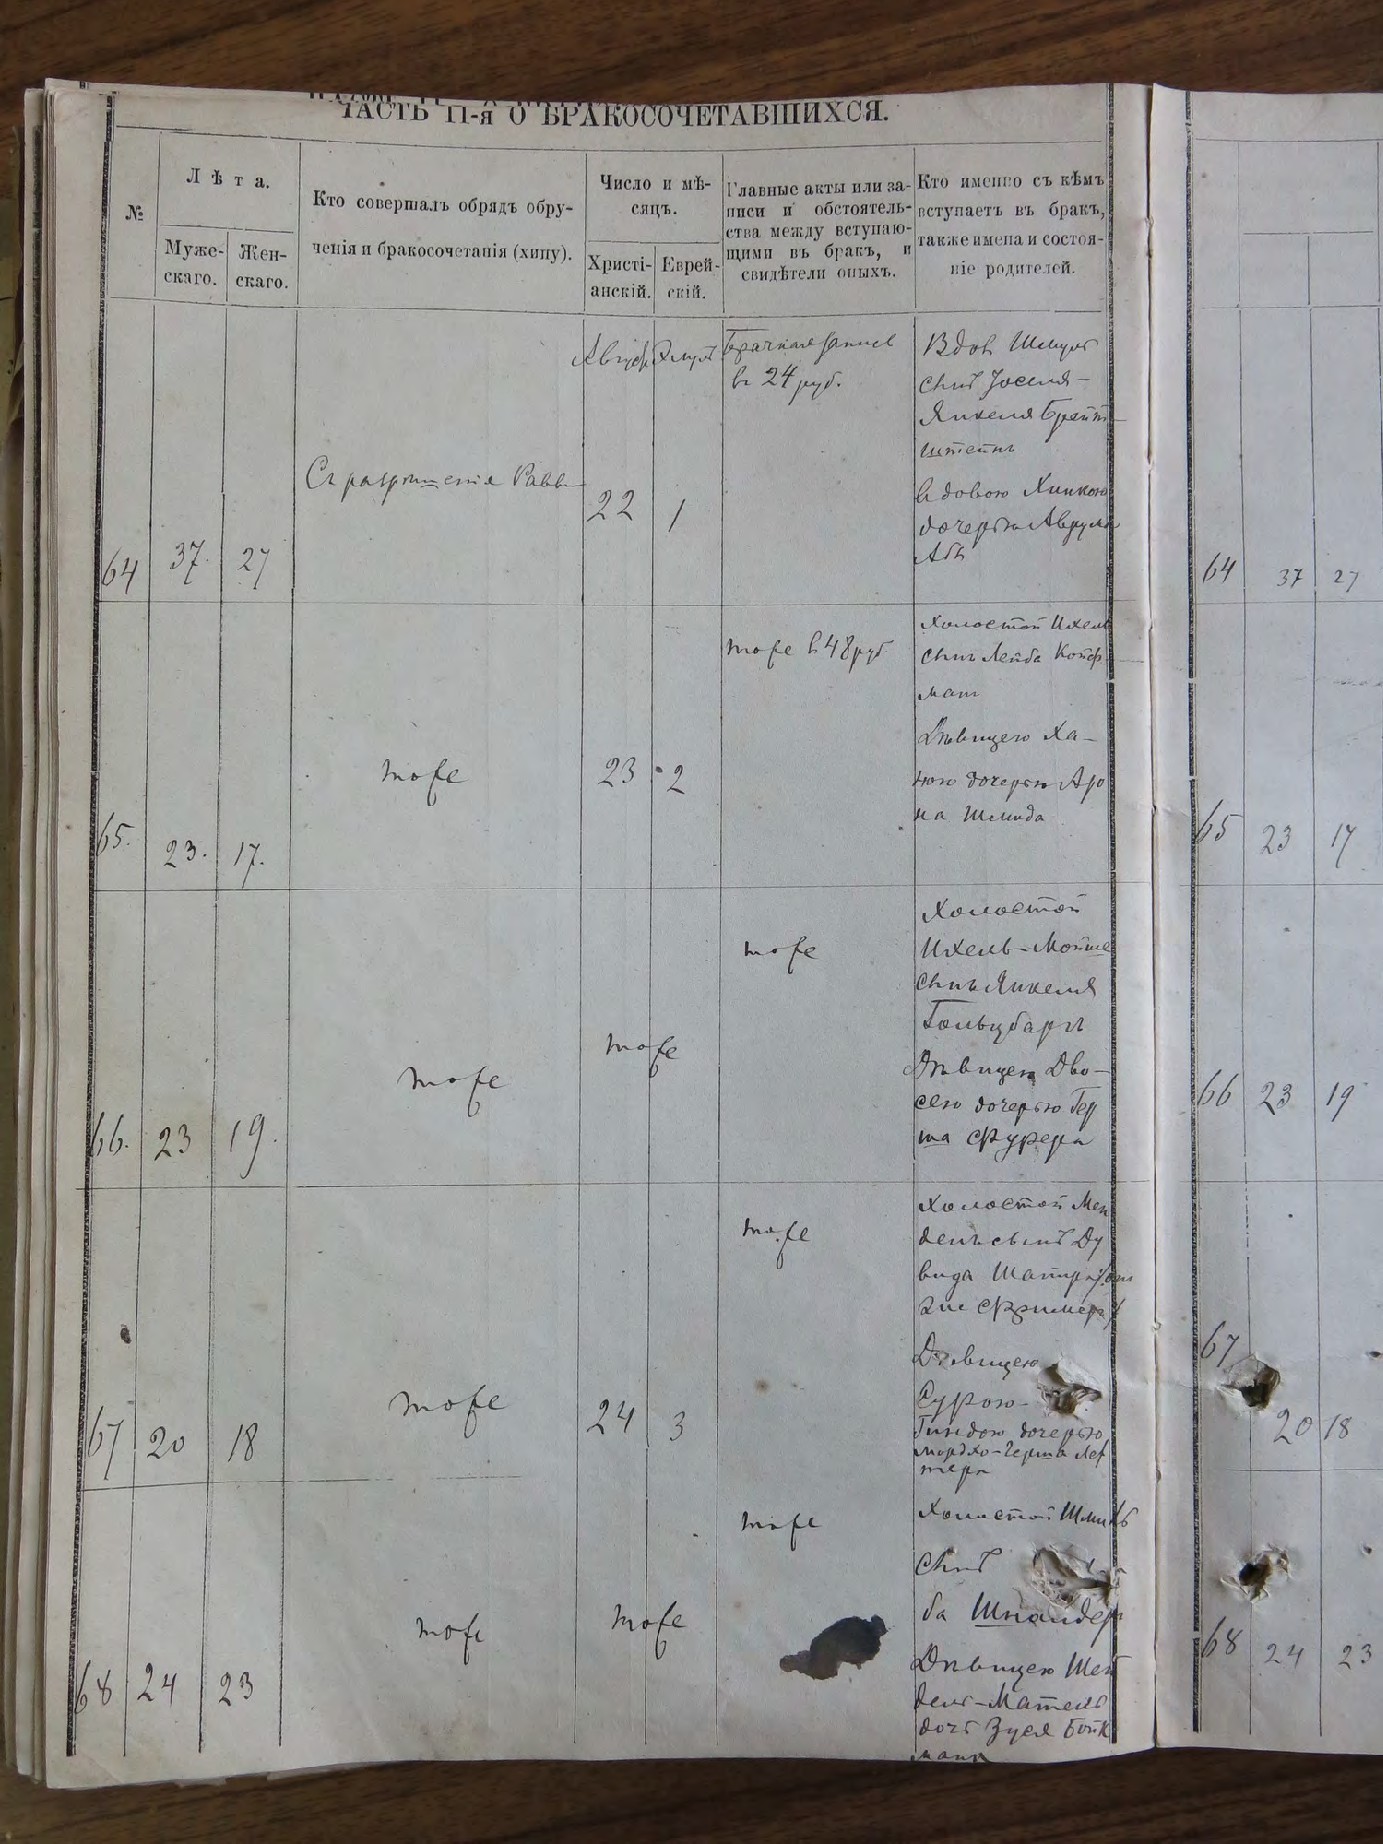 ЧАСТЬ II-я О БРАКОСОЧЕТАВШИХСЯ.
№
Лѣта.
Муже-
скаго.
Жен-
скаго.
Кто совершалъ обрядъ обру-
ченія и бракосочетанія (хипу).
Число и мѣ-
сяцъ.
Христі-
анскій.
Еврей-
скій.
Главные акты или за-
писи и обстоятель-
ства между вступаю-
щими въ бракъ, и
свидѣтели оныхъ.
Кто именно съ кѣмъ
вступаетъ въ бракъ,
также имена и состоя-
ніе родителей.
64
37
27
Съ разрѣшенія Равв
Август
22
Элулъ
1
Брачная запись
въ 24 руб.
Вдов Шмул
сынъ Іоселя-
Янкеля Брейт
штейнъ
вдовою
дочерью Аврума
64 37 27
65.
23.
17.
тоже
23
2
тоже в 48 руб
Холостой Ихель
сынъ Лейба Койф
ман
Дѣвицею Ха-
ною дочерью Аро
на Шмида
65 23 17
66.
23
19.
тоже
тоже
тоже
Холостой
Ихель-Мойше
сынъ Янкеля
Гольцбаргъ
Дѣвицею Дво-
сею дочерью Гер
ша Фурера
66 23 19
67
20
18
тоже
24
3
тоже
Холостой Мен
дель сынъ Ду
вида Шапира
Дѣвицею
Сурою-
Гиндою дочерью
Мордхо-Герша
67 20 18
68
24
23
тоже
тоже
тоже
Холостой
сынъ
ба Шпайдер
Дѣвицею Шей
дель-Матель
доч Зуся Бойк
ман
68 24 23